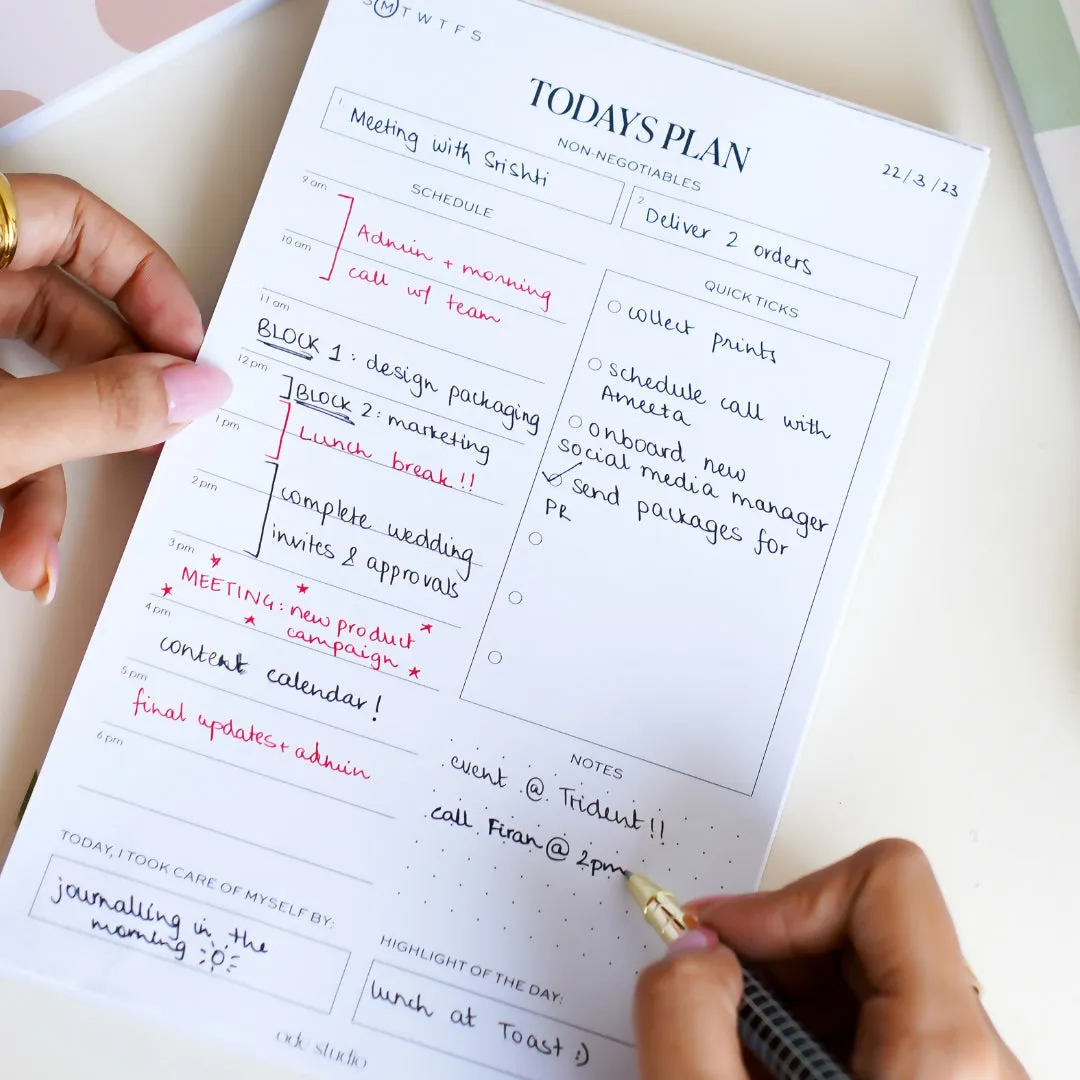 S M T W T F S
TODAYS PLAN
22/3/23
NON-NEGOTIABLES
1
Meeting with Srishti
2
Deliver 2 orders
SCHEDULE
9 am
Admin + morning
10 am
call w/ team
11 am
BLOCK 1: design packaging
12 pm
BLOCK 2: marketing
1 pm
Lunch break!!
2 pm
complete wedding
invites & approvals
3 pm
MEETING: new product
campaign
4 pm
content calendar!
5 pm
final updates + admin
6 pm
QUICK TICKS
collect prints
schedule call with
Ameeta
onboard new
social media manager
send packages for
PR
NOTES
event @ Trident!!
call Firan @ 2pm
TODAY, I TOOK CARE OF MYSELF BY:
journalling in the
morning
HIGHLIGHT OF THE DAY:
lunch at Toast :)
ode studio